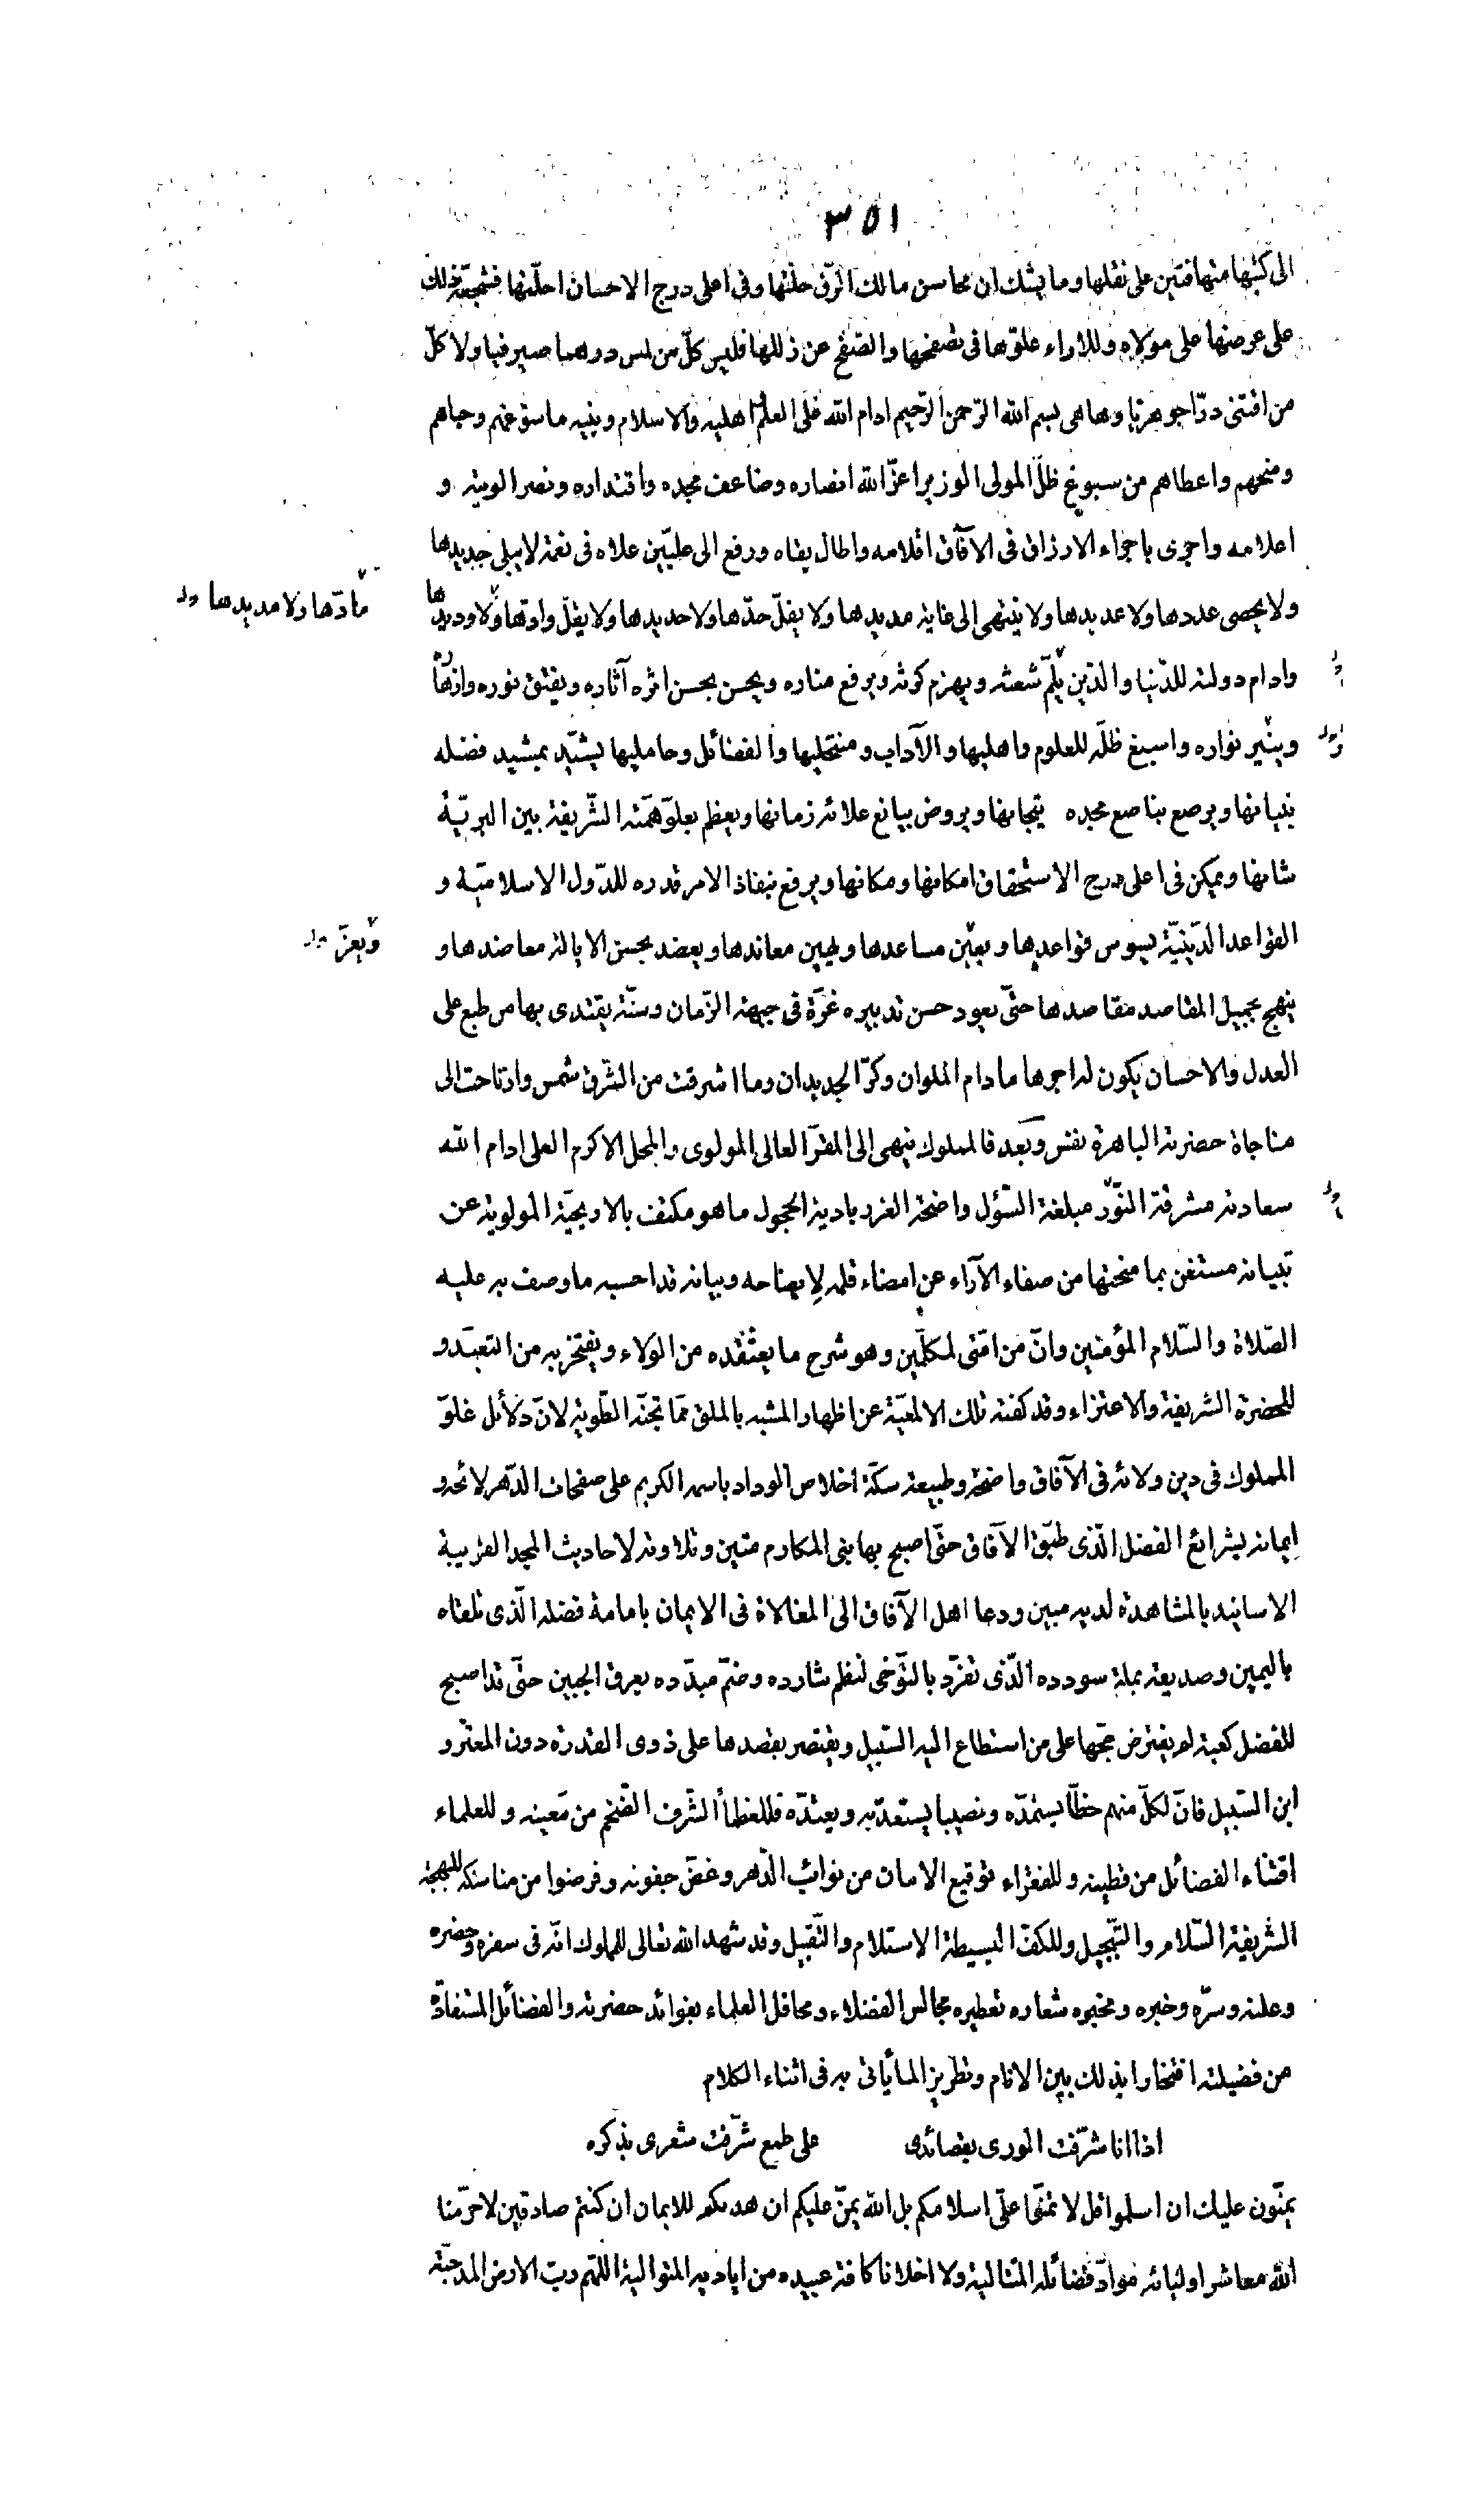 ٣٥١
الى كتبها متهافتين على نقلها وما يشك ان محاسن مالك الرّق حلّتها وفى اعلى درج الاحسان احلّتها فشجعه ذلك
على عرضها على مولاه وللاراء علوّها فى تصفحها والصّفح عن زللها فليس كلّ من لمس درهما صيرفيا ولا كلّ
من اقتنى درّا جوهريّا وها هى بسم الله الرّحمن الرّحيم ادام الله على العلم اهليه والاسلام وبنيه ما سوّغهم وحباهم
ومنحهم واعطاهم من سبوغ ظلّ المولى الوزير اعزّ الله انصاره وضاعف مجده واقتداره ونصر الويته و
اعلامه واجرى باجراء الارزاق فى الآفاق اقلامه واطال بقاه ورفع الى عليّين علاه فى نعمة لا يبلى جديدها
ولا يحصى عددها ولا عديدها ولا ينتهى الى غاية مديدها ولا يفلّ حدّها ولا حديدها ولا يقلّ وادّها ولا وديدها
مادّها ولا مديدها
وادام دولته للدّنيا والدّين يلمّ شعثه ويهزم كرثه ويرفع مناره ويحسن بحسن اثره آثاره ويفتق نوره وازهاره
وينير نواره واسبغ ظلّه للعلوم واهليها والآداب ومنتحليها والفضائل وحامليها يشيّد بمشيد فضله
بنيانها ويرصع بناصع مجده تيجانها ويروض بيانع علائه زمانها ويعظم بعلوّ همّته الشّريفة بين البريّة
شانها ويمكن فى اعلى درج الاستحقاق امكانها ومكانها ويرفع بنفاذ الامر قدره للدّول الاسلاميّة و
القواعد الدّينيّة يسوس قواعدها ويعين مساعدها ويهين معاندها ويعضد بحسن الايالة معاضدها و
ويعزّ
ينهج بجميل المقاصد مقاصدها حتّى يعود حسن تدبيره غرّة فى جبهة الزّمان وسنّة يقتدى بها من طبع على
العدل والاحسان يكون له اجرها ما دام الملوان وكرّ الجديدان وما اشرقت من الشّرق شمس وارتاحت الى
مناجاة حضرته الباهرة نفس وبعد فالمملوك ينهى الى المقرّ العالى المولوى والمحل الاكرم العلى ادام الله
سعادته مشرقة النّور مبلغة السّؤل واضحة الغرر بادية الحجول ما هو مكتف بالاريحيّة المولوية عن
تبيانه مستغن بما منحتها من صفاء الآراء عن امضاء قلمه لايضاحه وبيانه قد احسبه ما وصف به عليه
الصّلاة والسّلام المؤمنين وانّ من امّتى لمكلّمين وهو شرح ما يعتقده من الولاء ويفتخر به من التعبّد و
للحضرة الشريفة والاعتزاء وقد كفته تلك الالمعيّة عن اظهار المشبه بالملق ممّا تجنّه الطّوية لانّ دلائل غلوّ
المملوك فى دين ولائه فى الآفاق واضحة وطبيعة سكّة اخلاص الوداد باسمه الكريم على صفحات الدّهر لائحة و
ايمانه بشرائع الفضل الّذى طبّق الآفاق حتّى اصبح بها بنى المكارم متين وتلاوته لاحاديث المجد الغريبة
الاسانيد بالمشاهدة لديه مبين ودعا اهل الآفاق الى المغالاة فى الايمان بامامة فضله الّذى تلقاه
باليمين وصديقه بملة سودده الّذى تفرّد بالتّوخى لنظم شارده وضمّ مبدّده بعرق الجبين حتّى قد اصبح
للفضل كعبة لم يفترض حجّها على من استطاع اليه السّبيل ويقتصر بقصدها على ذوى القدرة دون المعترّ و
ابن السّبيل فانّ لكلّ منهم حظّا يستمدّه ونصيبا يستعدّ به ويعتدّه فللعظماء الشّرف الضّخم من معينه وللعلماء
اقتناء الفضائل من قطينه وللفقراء توقيع الامان من نوائب الدّهر وغضّ جفونه وفرضوا من مناسكه للبهجة
الشّريفة السّلام والتّبجيل وللكفّ البسيطة الاستلام والتّقبيل وقد شهد الله تعالى للمملوك انّه فى سفره وحضره
وعلنه وسرّه وخبره ومخبره شعاره تعطيره مجالس الفضلاء ومحافل العلماء بفوائد حضرته والفضائل المستفادة
من فضيلته افتخارا بذلك بين الانام وتطريز المايأتى به فى اثناء الكلام
اذا انا شرّفت الورى بقصائدى على طمع شرّفت شعرى بذكره
يمنّون عليك ان اسلموا قل لا تمنّوا علىّ اسلامكم بل الله يمنّ عليكم ان هديكم للايمان ان كنتم صادقين لا حرّمنا
الله معاشر اوليائه موادّ فضائله المتتالية ولا اخلانا كافة عبيده من اياديه المتوالية اللّهم ربّ الارض المدحيّة